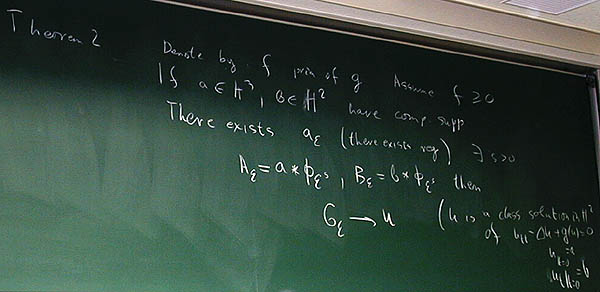 Theorem 2
Denote by f prim of g Assume f ≥ 0
If a ∈ H³, b ∈ H² have comp. supp
There exists a_ε (there exists reg) ∃ s>0
A_ε = a * φ_ε^s, B_ε = b * φ_ε^s then
G_ε → u (u is a class solution in H²
of u_tt - Δu + g(u) = 0
u|_t=0 = a
u_t|_t=0 = b